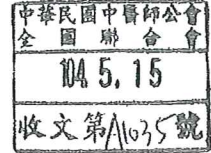 中華民國中醫師公會
全國聯合會
104.5.15
收文第A1035號